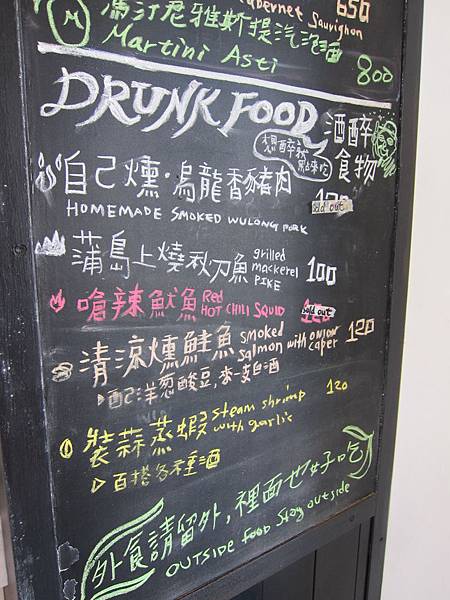 Cabernet Sauvignon 650
馬汀尼雅斯提汽泡酒
Martini Asti 800
DRUNK FOOD 酒醉食物
想醉就點來吃
自己燻·烏龍香豬肉
sold out
HOMEMADE SMOKED WULONG PORK
蒲島上燒秋刀魚 grilled mackerel PIKE 100
嗆辣魷魚 Red HOT CHILI SQUID
sold out
清涼燻鮭魚 smoked salmon with onion caper 120
▷配洋蔥酸豆,來一支白酒
裝蒜蒸蝦 steam shrimp with garlic 120
▷百搭各種酒
外食請留外,裡面也好吃
OUTSIDE FOOD Stay outside